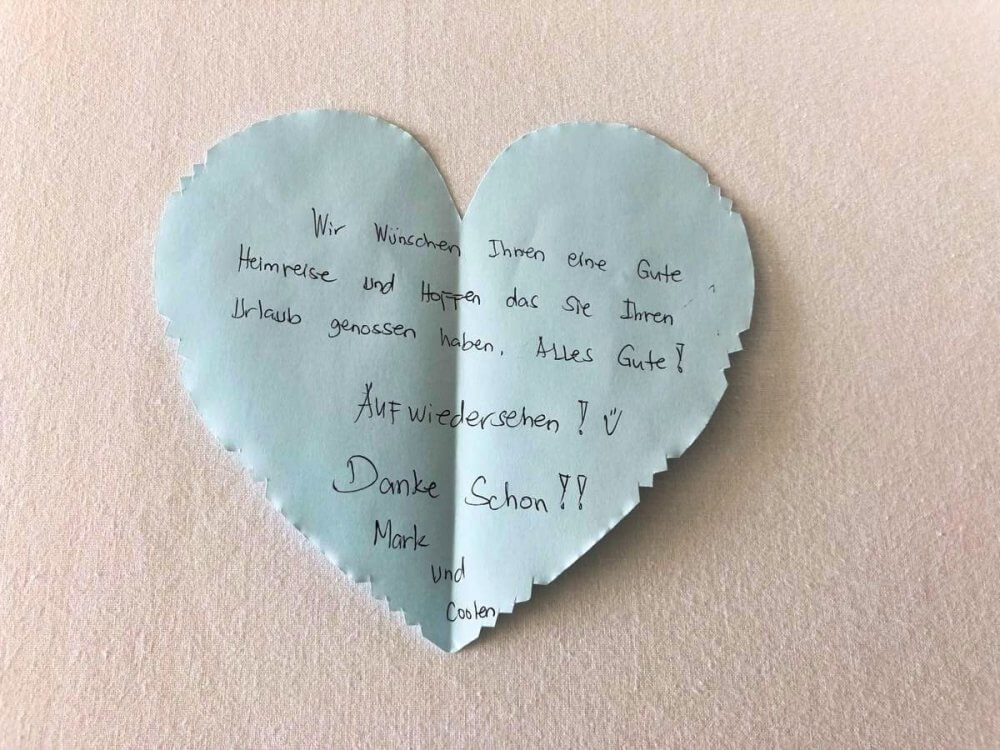 Wir Wünschen Ihnen eine Gute
Heimreise und Hoffen das sie Ihren
Urlaub genossen haben. Alles Gute!
Auf wiedersehen!
Danke Schon!!
Mark
und
Coolen